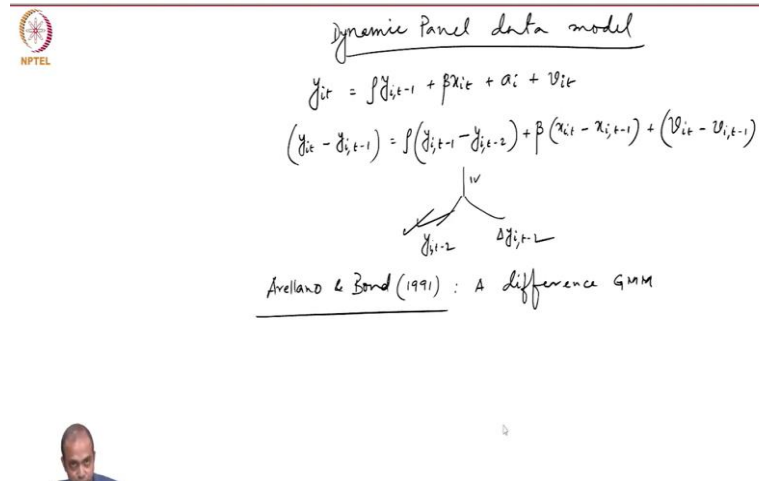 NPTEL
Dynamic Panel data model
y_it = ρy_i,t-1 + βx_it + a_i + v_it
(y_it - y_i,t-1) = ρ(y_i,t-1 - y_i,t-2) + β(x_it - x_i,t-1) + (v_it - v_i,t-1)
IV
y_i,t-2 Δy_i,t-2
Arellano & Bond (1991) : A difference GMM